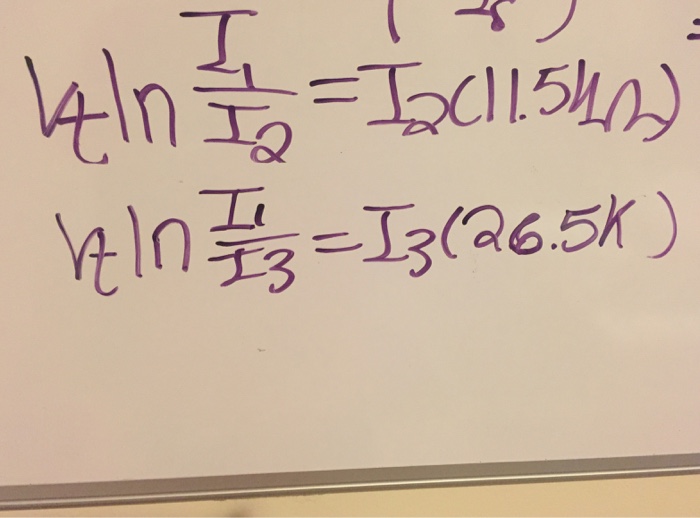 Vt ln I1/I2 = I2(11.5kΩ)
Vt ln I1/I3 = I3(26.5K)